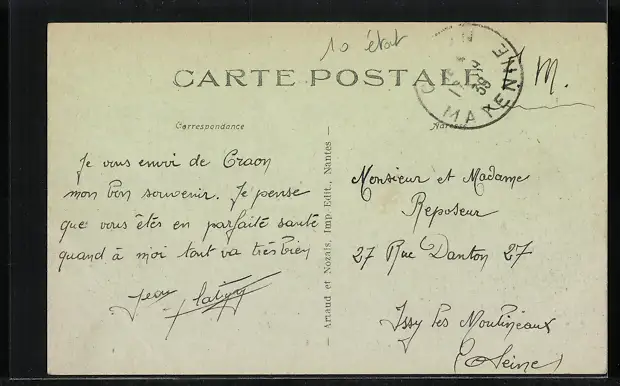 10 état
CARTE POSTALE
MAYENNE
M.
Correspondance
Adresse
Je vous envoi de Craon
mon bon souvenir. Je pense
que vous êtes en parfaite santé
quand à moi tout va très bien
Jean
Artaud et Nozais, Imp. Edit., Nantes
Monsieur et Madame
Reposeur
27 Rue Danton 27
Issy les Moulineaux
(Seine)